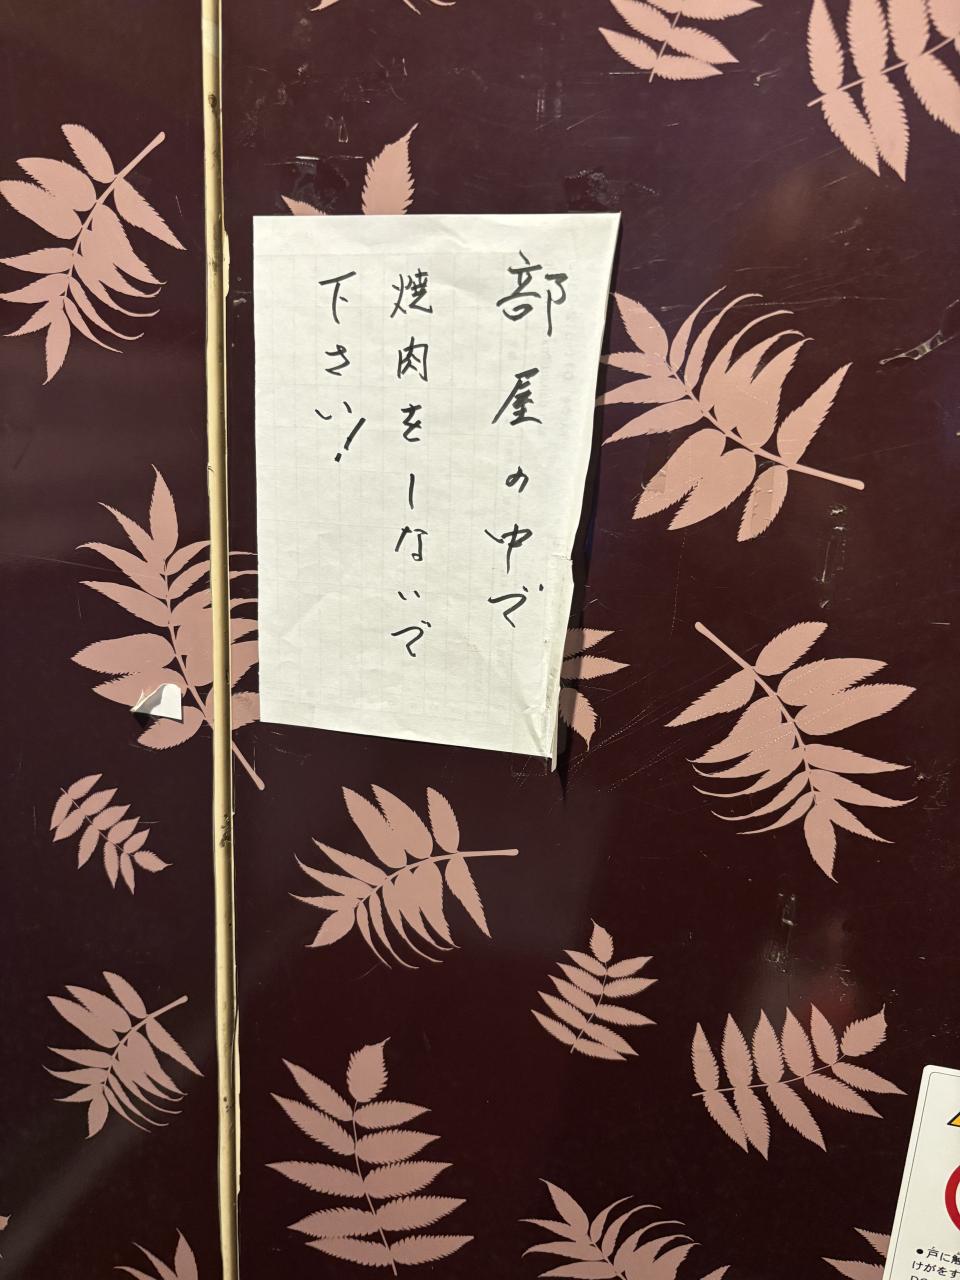 部屋の中で
焼肉をしないで
下さい!
●戸に
けがをす